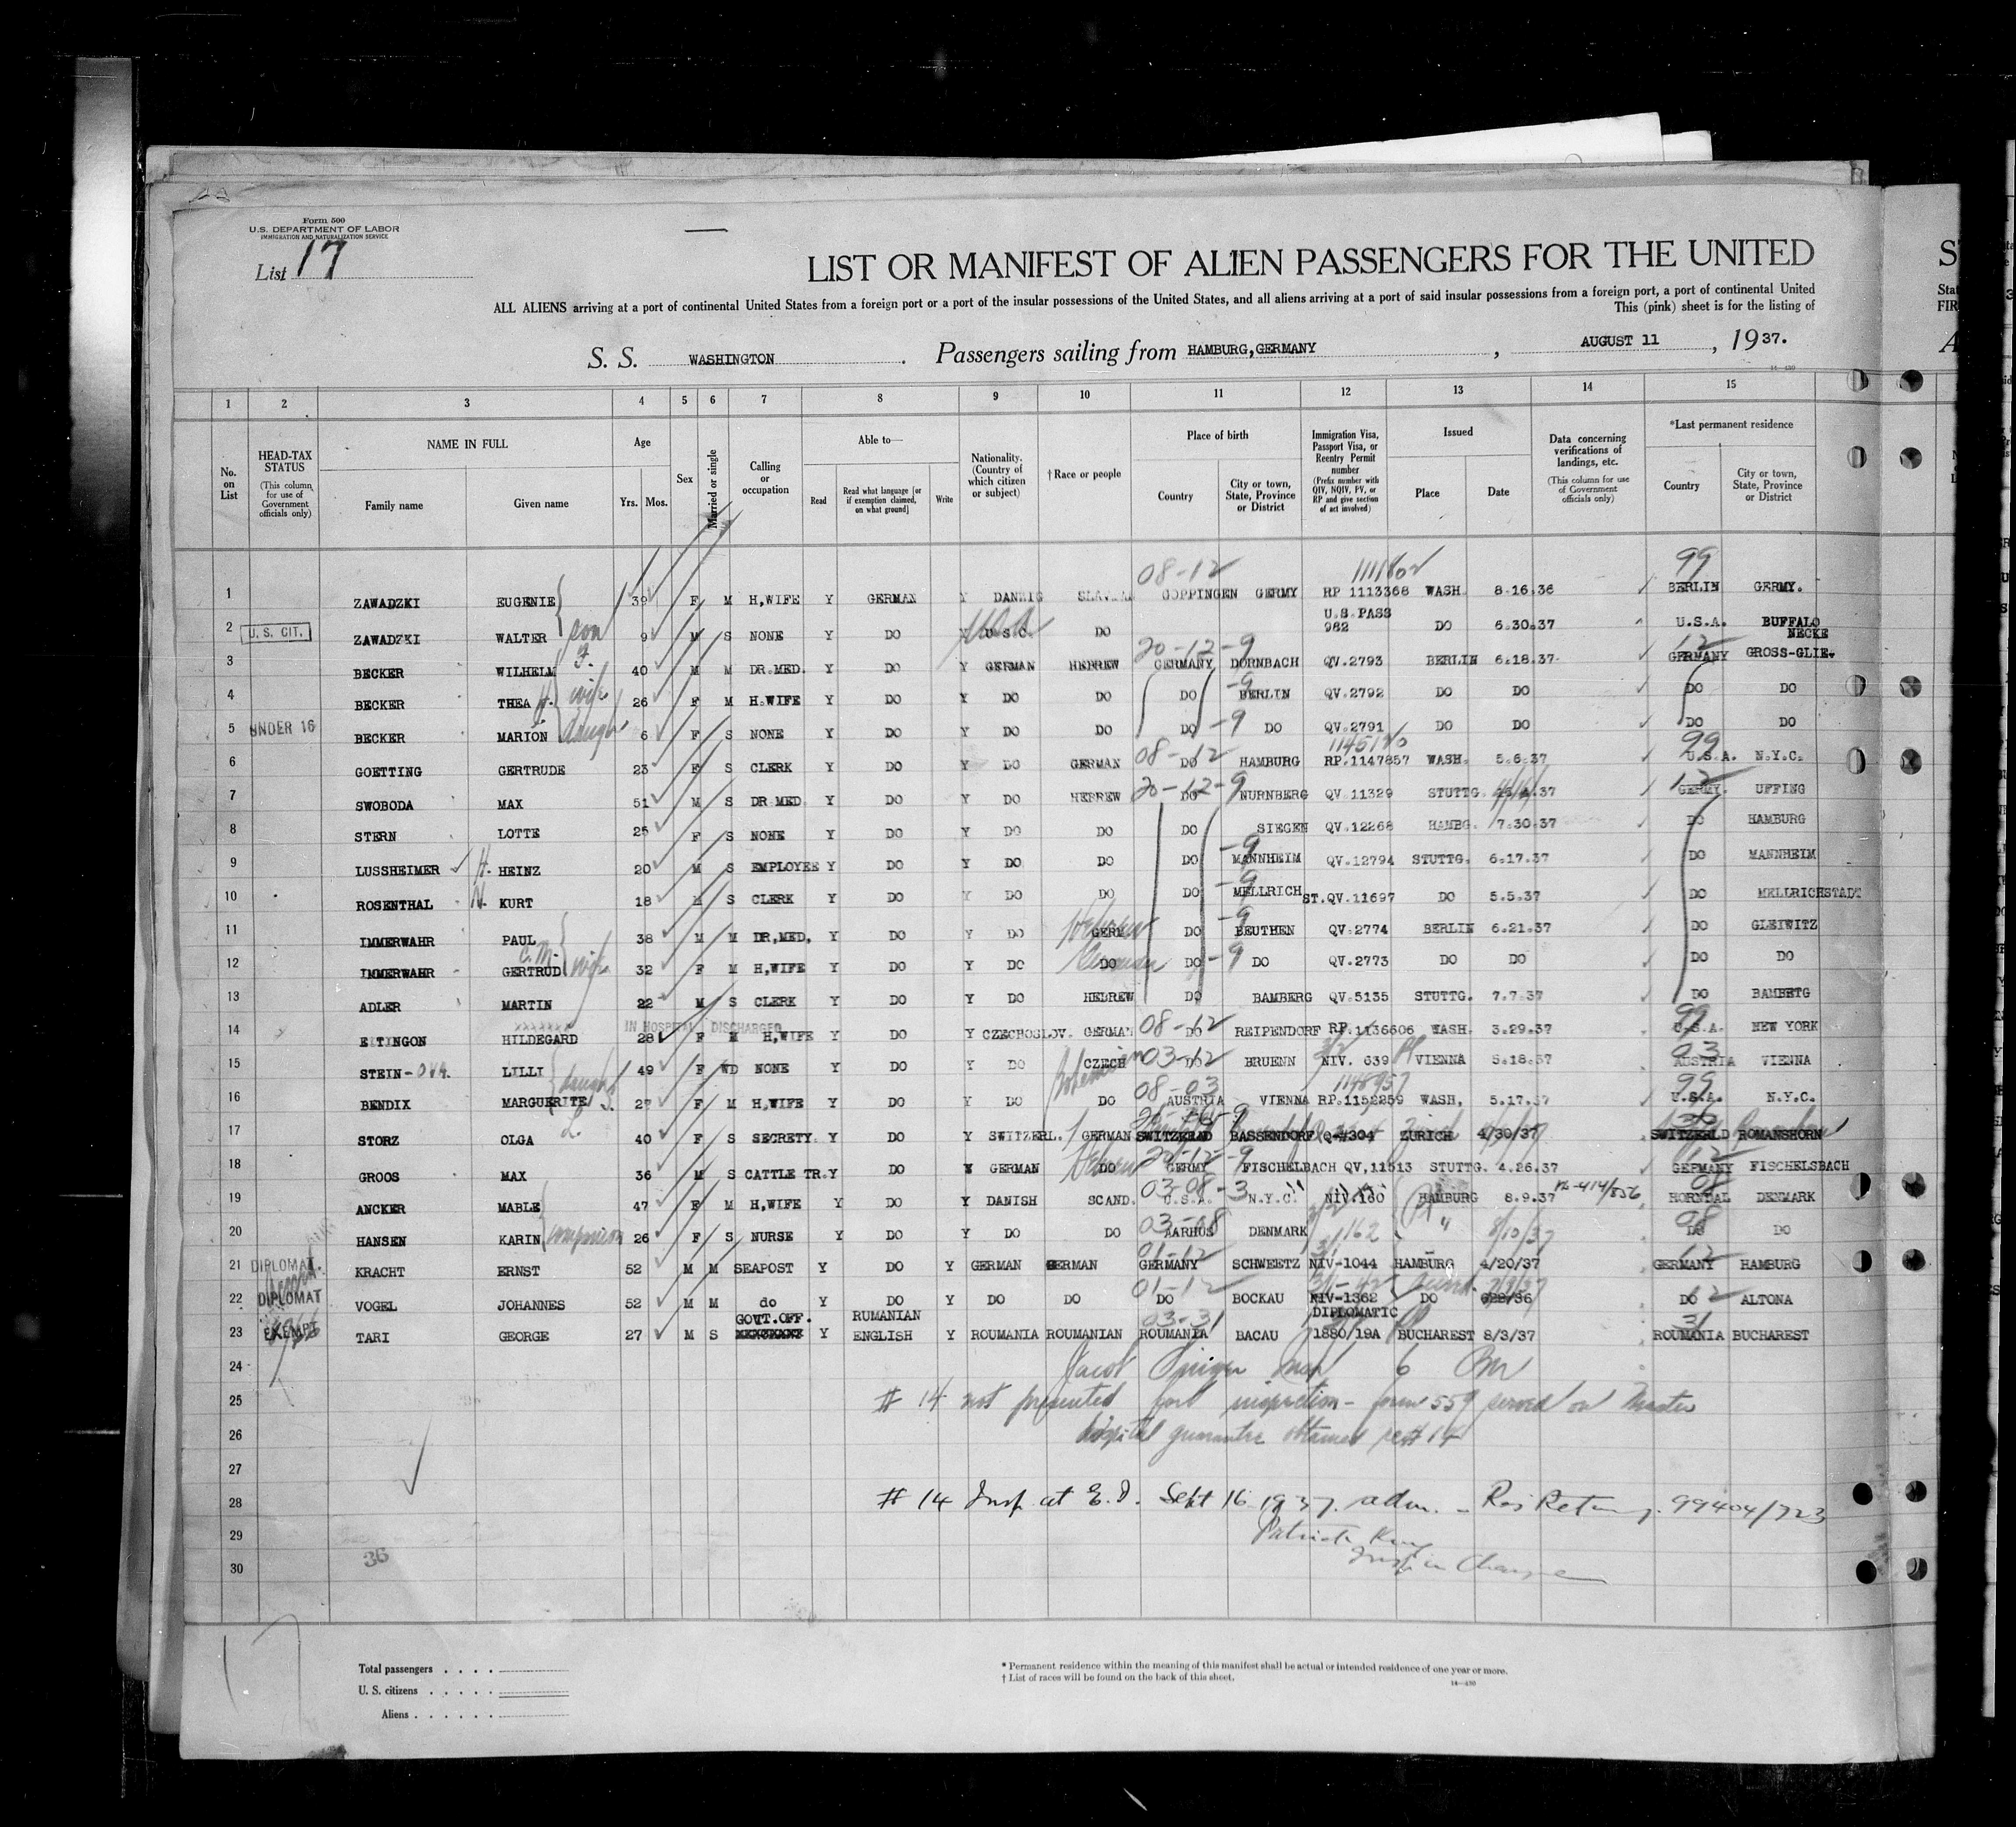 Form 500
U.S. DEPARTMENT OF LABOR
IMMIGRATION AND NATURALIZATION SERVICE
List 17
LIST OR MANIFEST OF ALIEN PASSENGERS FOR THE UNITED
ALL ALIENS arriving at a port of continental United States from a foreign port or a port of the insular possessions of the United States, and all aliens arriving at a port of said insular possessions from a foreign port, a port of continental United
This (pink) sheet is for the listing of
S. S. WASHINGTON . Passengers sailing from HAMBURG,GERMANY , AUGUST 11 , 1937.
14-430
1 2 3 4 5 6 7 8 9 10 11 12 13 14 15
No. on List
HEAD-TAX STATUS
(This column for use of Government officials only)
NAME IN FULL
Family name Given name
Age
Yrs. Mos.
Sex
Married or single
Calling or occupation
Able to—
Read
Read what language [or if exemption claimed, on what ground]
Write
Nationality. (Country of which citizen or subject)
† Race or people
Place of birth
Country
City or town, State, Province or District
Immigration Visa, Passport Visa, or Reentry Permit number
(Prefix number with QIV, NQIV, PV, or RP and give section of act involved)
Issued
Place Date
Data concerning verifications of landings, etc.
(This column for use of Government officials only)
*Last permanent residence
Country
City or town, State, Province or District
08-12 99
1 ZAWADZKI EUGENIE 39 F M H,WIFE Y GERMAN Y DANZIG GOPPINGEN GERMY RP 1113368 WASH. 8.16.36 BERLIN GERMY.
2 U. S. CIT. ZAWADZKI WALTER son 9 M S NONE Y DO Y U.S.C. DO U.S.PASS 982 DO 6.30.37 U.S.A. BUFFALO
3 BECKER WILHELM F. 40 M M DR.MED. Y DO Y GERMAN HEBREW 20-12-9 GERMANY DORNBACH QV.2793 BERLIN 6.18.37 12 GERMANY NECKE GROSS-GLIE-
4 BECKER THEA H. wife 26 F M H.WIFE Y DO Y DO DO DO -9 BERLIN QV.2792 DO DO DO DO
5 UNDER 16 BECKER MARION 6 F S NONE Y DO Y DO DO DO -9 DO QV.2791 DO DO DO DO
6 GOETTING GERTRUDE 23 F S CLERK Y DO Y DO GERMAN 08-12 DO HAMBURG RP.1147857 WASH. 5.6.37 99 U.S.A. N.Y.C.
7 SWOBODA MAX 51 M S DR MED. Y DO Y DO HEBREW 20-12-9 DO NURNBERG QV 11329 STUTTG. 12 GERMY. UFFING
8 STERN LOTTE 25 F S NONE Y DO Y DO DO DO SIEGEN QV.12268 HAMBG. 7.30.37 DO HAMBURG
9 LUSSHEIMER H. HEINZ 20 M S EMPLOYEE Y DO Y DO DO DO -9 MANNHEIM QV.12794 STUTTG. 6.17.37 DO MANNHEIM
10 ROSENTHAL N. KURT 18 M S CLERK Y DO Y DO DO DO -9 MELLRICH ST.QV.11697 DO 5.5.37 DO MELLRICHSTADT
11 IMMERWAHR PAUL 38 M M DR,MED, Y DO Y DO Hebrew GERM DO -9 BEUTHEN QV.2774 BERLIN 6.21.37 DO GLEIWITZ
12 IMMERWAHR C.M. GERTRUD wife 32 F M H,WIFE Y DO Y DO DO DO -9 DO QV.2773 DO DO DO DO
13 ADLER MARTIN 22 M S CLERK Y DO Y DO HEBREW DO BAMBERG QV.5135 STUTTG. 7.7.37 DO BAMBETG
XXXXXXX IN HOSPITAL DISCHARGED
14 EITINGON HILDEGARD 28 F M H,WIFE Y DO Y CZECHOSLOV. GERMAN 08-12 DO REIPENDORF RP.1136606 WASH. 3.29.37 99 U.S.A. NEW YORK
15 STEIN-OVA LILLI 49 F WD NONE Y DO Y DO Bohemian CZECH 03-12 DO BRUENN NIV. 639 VIENNA 5.18.37 03 AUSTRIA VIENNA
16 BENDIX MARGUERITE 27 F M H,WIFE Y DO Y DO DO 08-03 AUSTRIA VIENNA RP.1152259 WASH. 5.17.37 99 U.S.A. N.Y.C.
17 STORZ OLGA L. 40 F S SECRETY. Y DO Y SWITZERL. GERMAN SWITZERLD BASSENDORF Q-#304 ZURICH 4/30/37 SWITZERLD ROMANSHORN
18 GROOS MAX 36 M S CATTLE TR. Y DO Y GERMAN Hebrew DO 20-12-9 GERMY FISCHELBACH QV,11513 STUTTG. 4.26.37 12 GERMANY FISCHELSBACH
19 ANCKER MABLE 47 F M H,WIFE Y DO Y DANISH SCAND. 03-08-3 U.S.A. N.Y.C. NIV.160 HAMBURG 8.9.37 08 HORNDAL DENMARK
20 HANSEN KARIN companion 26 F S NURSE Y DO Y DO DO 03-08 AARHUS DENMARK 162 " 8/10/37 08 DO DO
21 DIPLOMAT. KRACHT ERNST 52 M M SEAPOST Y DO Y GERMAN GERMAN 01-12 GERMANY SCHWEETZ NIV-1044 HAMBURG 4/20/37 12 GERMANY HAMBURG
22 DIPLOMAT VOGEL JOHANNES 52 M M do Y DO Y DO DO 01-12 DO BOCKAU NIV-1362 DO DO 12 ALTONA
23 EXEMPT TARI GEORGE 27 M S GOVT.OFF. Y RUMANIAN ENGLISH Y ROUMANIA ROUMANIAN 03-31 ROUMANIA BACAU DIPLOMATIC 1880/19A BUCHAREST 8/3/37 31 ROUMANIA BUCHAREST
24 Jacob 6
25 # 14 not presented for inspection - form 559 served on Master
26 hospital guarantee obtained re # 14
27
28 # 14 Insp. at E.I. Sept 16 1937. adm. - Res Return. 99404/723
29 Insp in Charge
30
36
17
Total passengers . . . .
U. S. citizens . . . . .
Aliens . . . . . .
* Permanent residence within the meaning of this manifest shall be actual or intended residence of one year or more.
† List of races will be found on the back of this sheet.
14-430